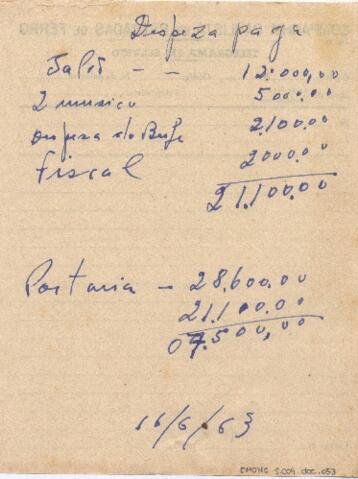 Despeza paga
Salão - - 12.000,00
2 musico 5000.00
despesa do Bufe 2.100.00
Fiscal 2000.00
21.100.00
Portaria - 28.600.00
21.100.00
07.500,00
16/6/63
CMOHC S.009 doc.053